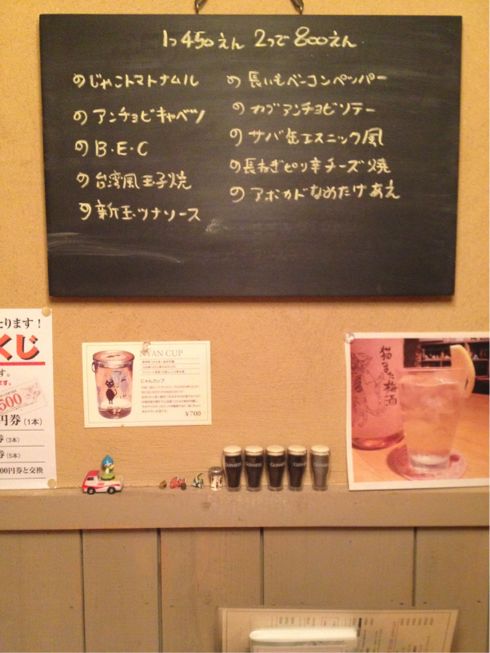 1つ450えん 2つで800えん
のじゃこトマトナムル
のアンチョビキャベツ
のB・E・C
の台湾風玉子焼
の新玉ツナソース
の長いもベーコンペッパー
のカブアンチョビソテー
のサバ缶エスニック風
の長ねぎピリ辛チーズ焼
のアボカドなめたけあえ
たります!
くじ
す。
500
円券(1本)
券(3本)
券(5本)
00円券と交換
NYAN CUP
にゃんカップ
¥700
GUINNESS
GUINNESS
GUINNESS
GUINNESS
GUINNESS
猫また梅酒